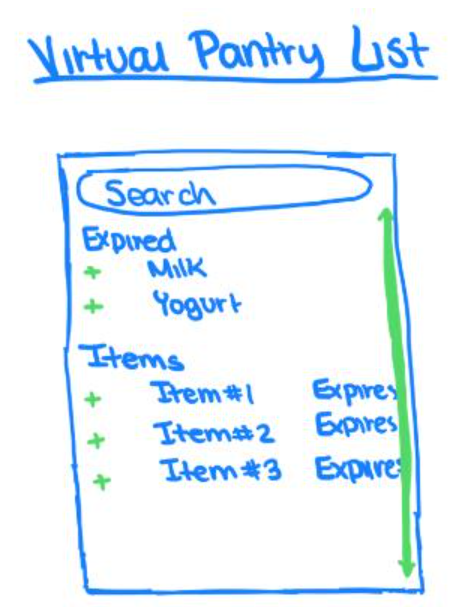 Virtual Pantry List
Search
Expired
+ Milk
+ Yogurt
Items
+ Item #1 Expires
+ Item #2 Expires
+ Item #3 Expires